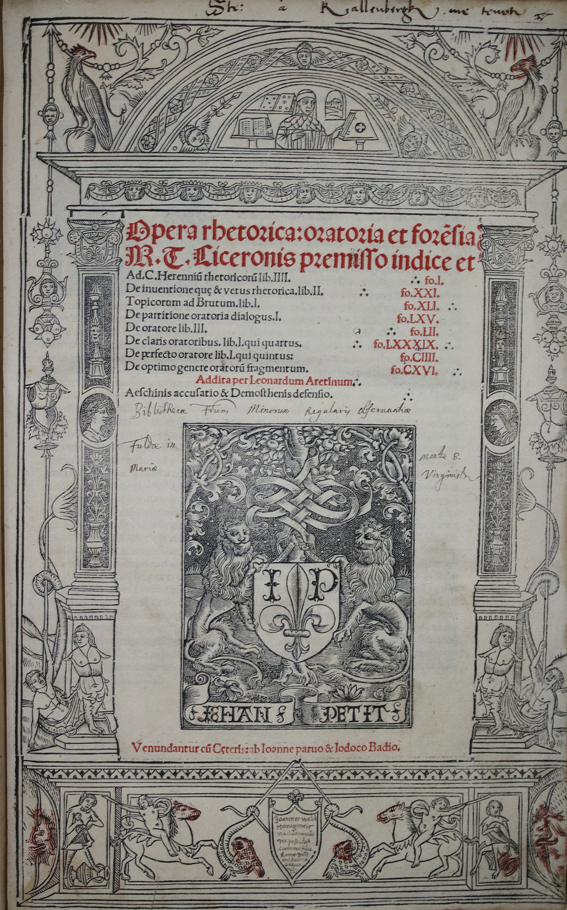 me tenet
Opera rhetorica: oratoria et forẽsia
M. T. Ciceronis premisso indice et
Ad.C.Herenniũ rhetoricorũ lib.IIII. ∴ fo.I.
De inuentione quę & vetus rhetorica.lib.II. ∴ fo.XXI.
Topicorum ad Brutum.lib.I. fo.XLI. ∴
De partitione oratoria dialogus.I. fo.LXV.
De oratore lib.III. ∴ fo.LII.
De claris oratoribus. lib.I.qui quartus. ∴ fo.LXXXIX. ∴
De perfecto oratore lib.I.qui quintus: fo.CIIII.
De optimo genere oratorũ fragmentum. fo.CXVI. ∴
Addita per Leonardum Aretinum ∴
Aeschinis accusatio & Demosthenis defensio. ∴
Bibliothecæ Frum Minorum Regularis obseruantiæ
Fuldæ in monte B.
Mariæ Virginis
I P
IEHAN PETIT
Venundantur cũ Cęteris ab Ioanne paruo & Iodoco Badio.